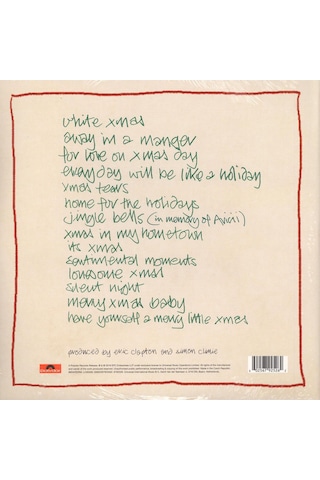 white xmas
away in a manger
for love on xmas day
everyday will be like a holiday
xmas tears
home for the holidays
jingle bells (in memory of Avicii)
xmas in my hometown
its xmas
sentimental moments
lonesome xmas
silent night
merry xmas baby
have yourself a merry little xmas
produced by eric clapton and simon climie